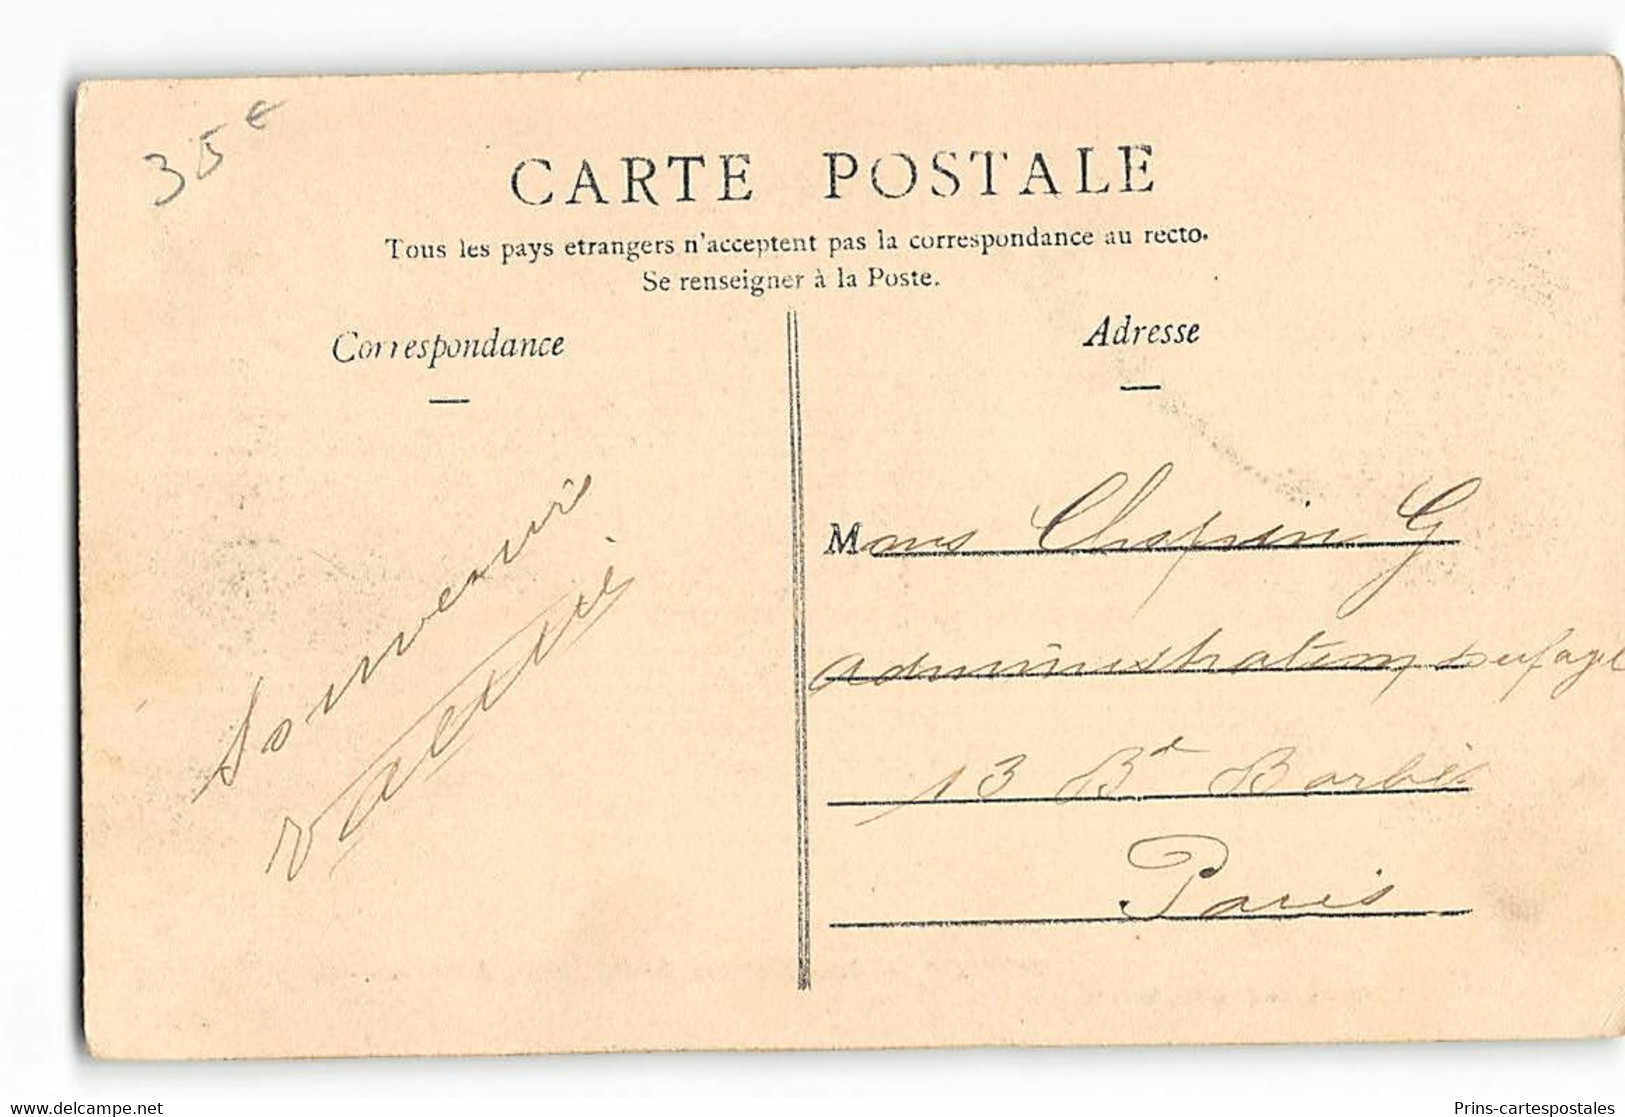 35 €
CARTE POSTALE
Tous les pays etrangers n'acceptent pas la correspondance au recto.
Se renseigner à la Poste.
Correspondance
Adresse
Souvenir
Mons Chapin G
administration Dufayel
13 Bd Barbès
Paris
www.delcampe.net
Prins-cartespostales